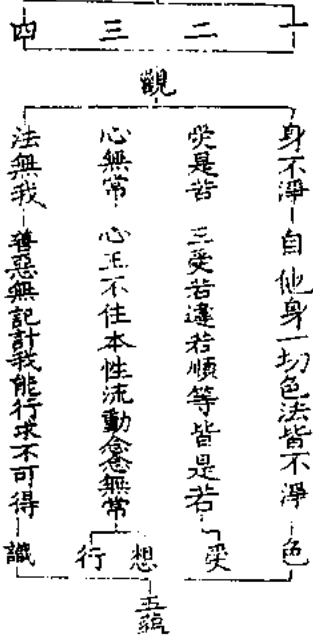 一
二
三
四
觀
身不淨 自他身一切色法皆不淨 色
受是苦 三受若違若順等皆是苦 受
心無常 心王不住本性流動念念無常 想
行
法無我 善惡無記計我能行求不可得 識
五蘊